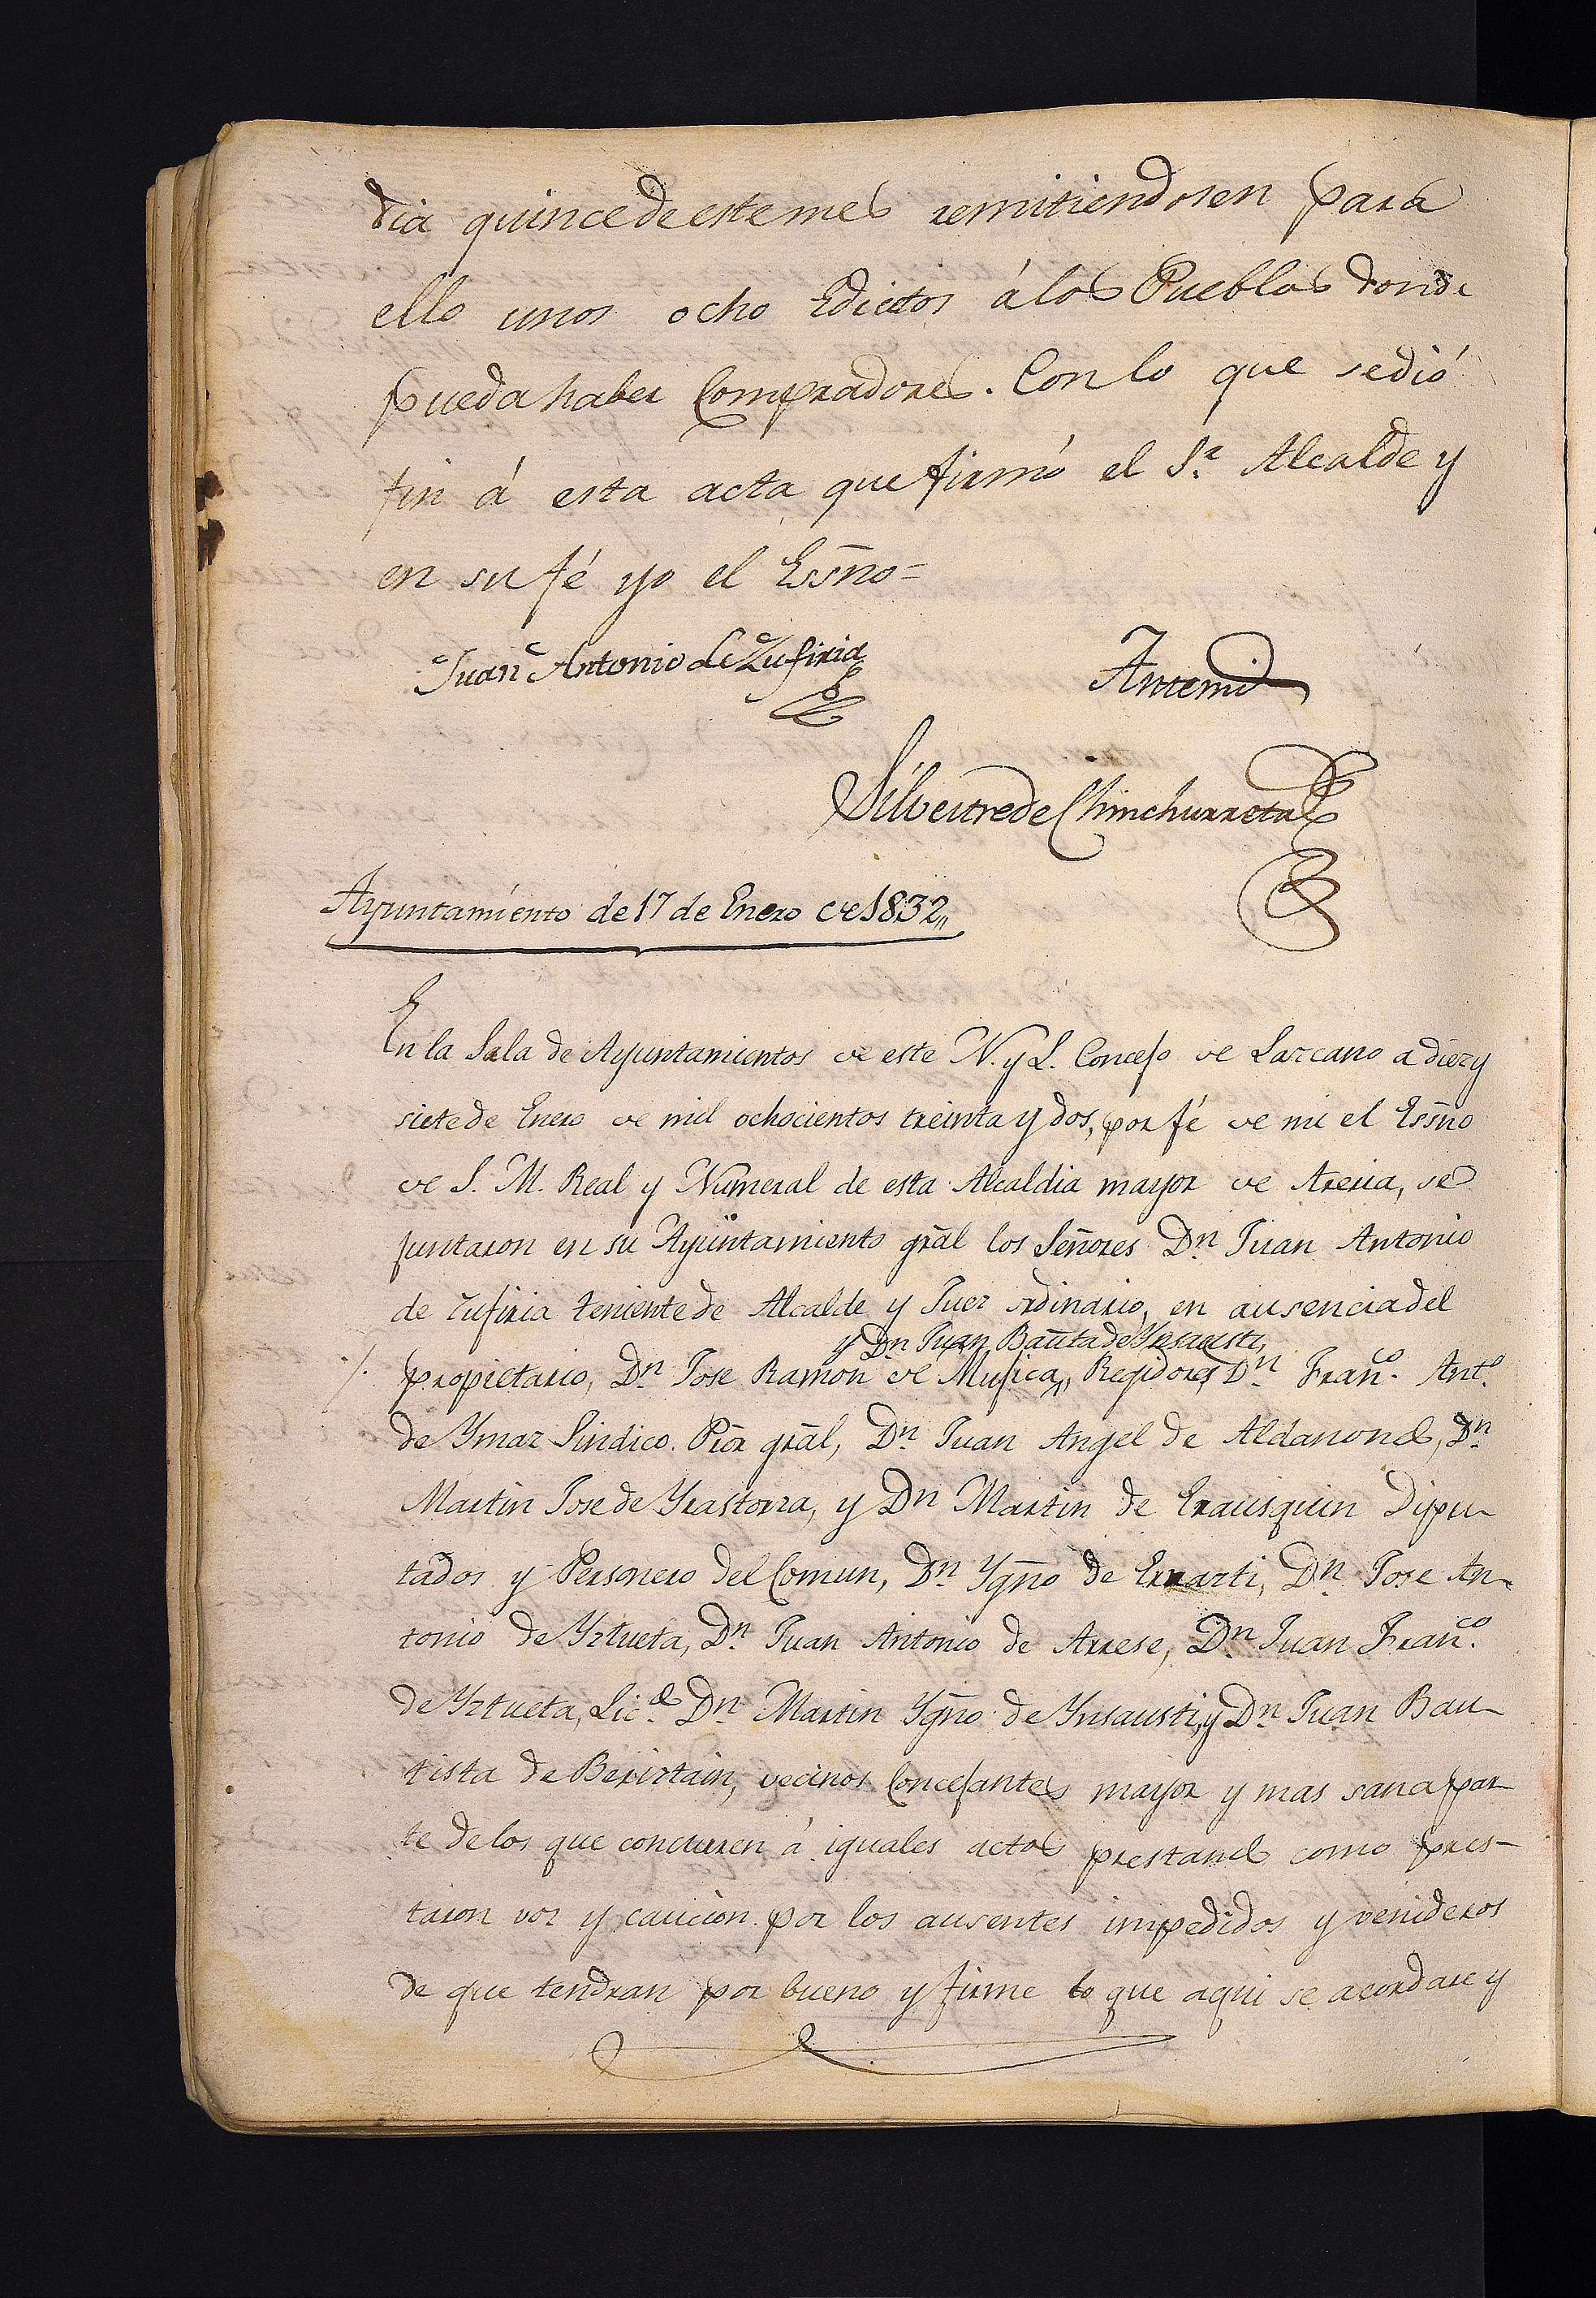 dia quince de este mes remitiendosen para
ello unos ocho Edictos á los Pueblos donde
pueda haber Compradores. Con lo que se dió
fin á esta acta que firmó el Sr. Alcalde y
en su fé yo el Essño=
Juan Antonio de Zufiria
Antemi
Silvestre de Chinchurreta
Ayuntamiento de 17 de Enero de 1832,,
En la Sala de Ayuntamientos de este N. y L. Concejo de Lazcano a diez y
siete de Enero de mil ochocientos treinta y dos, por fé de mi el Essño
de S. M. Real y Numeral de esta Alcaldia mayor de Areria, se
juntaron en su Ayuntamiento grãl los Señores Dn. Juan Antonio
de Zufiria teniente de Alcalde y Juez ordinario, en ausencia del
y Dn Juan Bau͠ta de Ynsausti,
/. propietario, Dn. Jose Ramon de Mujica,, Regidores, Dn. Franco. Anto.
de Ymaz Sindico Prõr grãl, Dn. Juan Angel de Aldanondo, Dn.
Martin Jose de Yrastorza, y Dn Martin de Erausquin Dipu-
tados y Personero del Comun, Dn. Ygño de Errazti, Dn. Jose An-
tonio de Yztueta, Dn. Juan Antonio de Arrese, Dn. Juan Franco.
de Yztueta, Licdo. Dn. Martin Ygño de Ynsausti, y Dn. Juan Bau-
tista de Beriztain, vecinos Concejantes mayor y mas sana par-
te de los que concurren á iguales actos prestando como pres-
taron voz y caucion por los ausentes impedidos y venideros
de que tendran por bueno y firme lo que aqui se acordare y